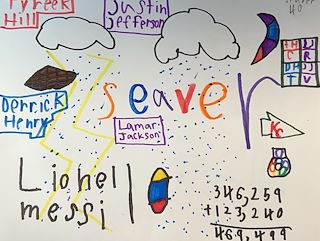 Tyreek
Hill
Justin
Jefferson
40
Derrick
Henry
Seaver
Lamar
Jackson
KC
Lionell
messi
346,259
+123,240
469,499